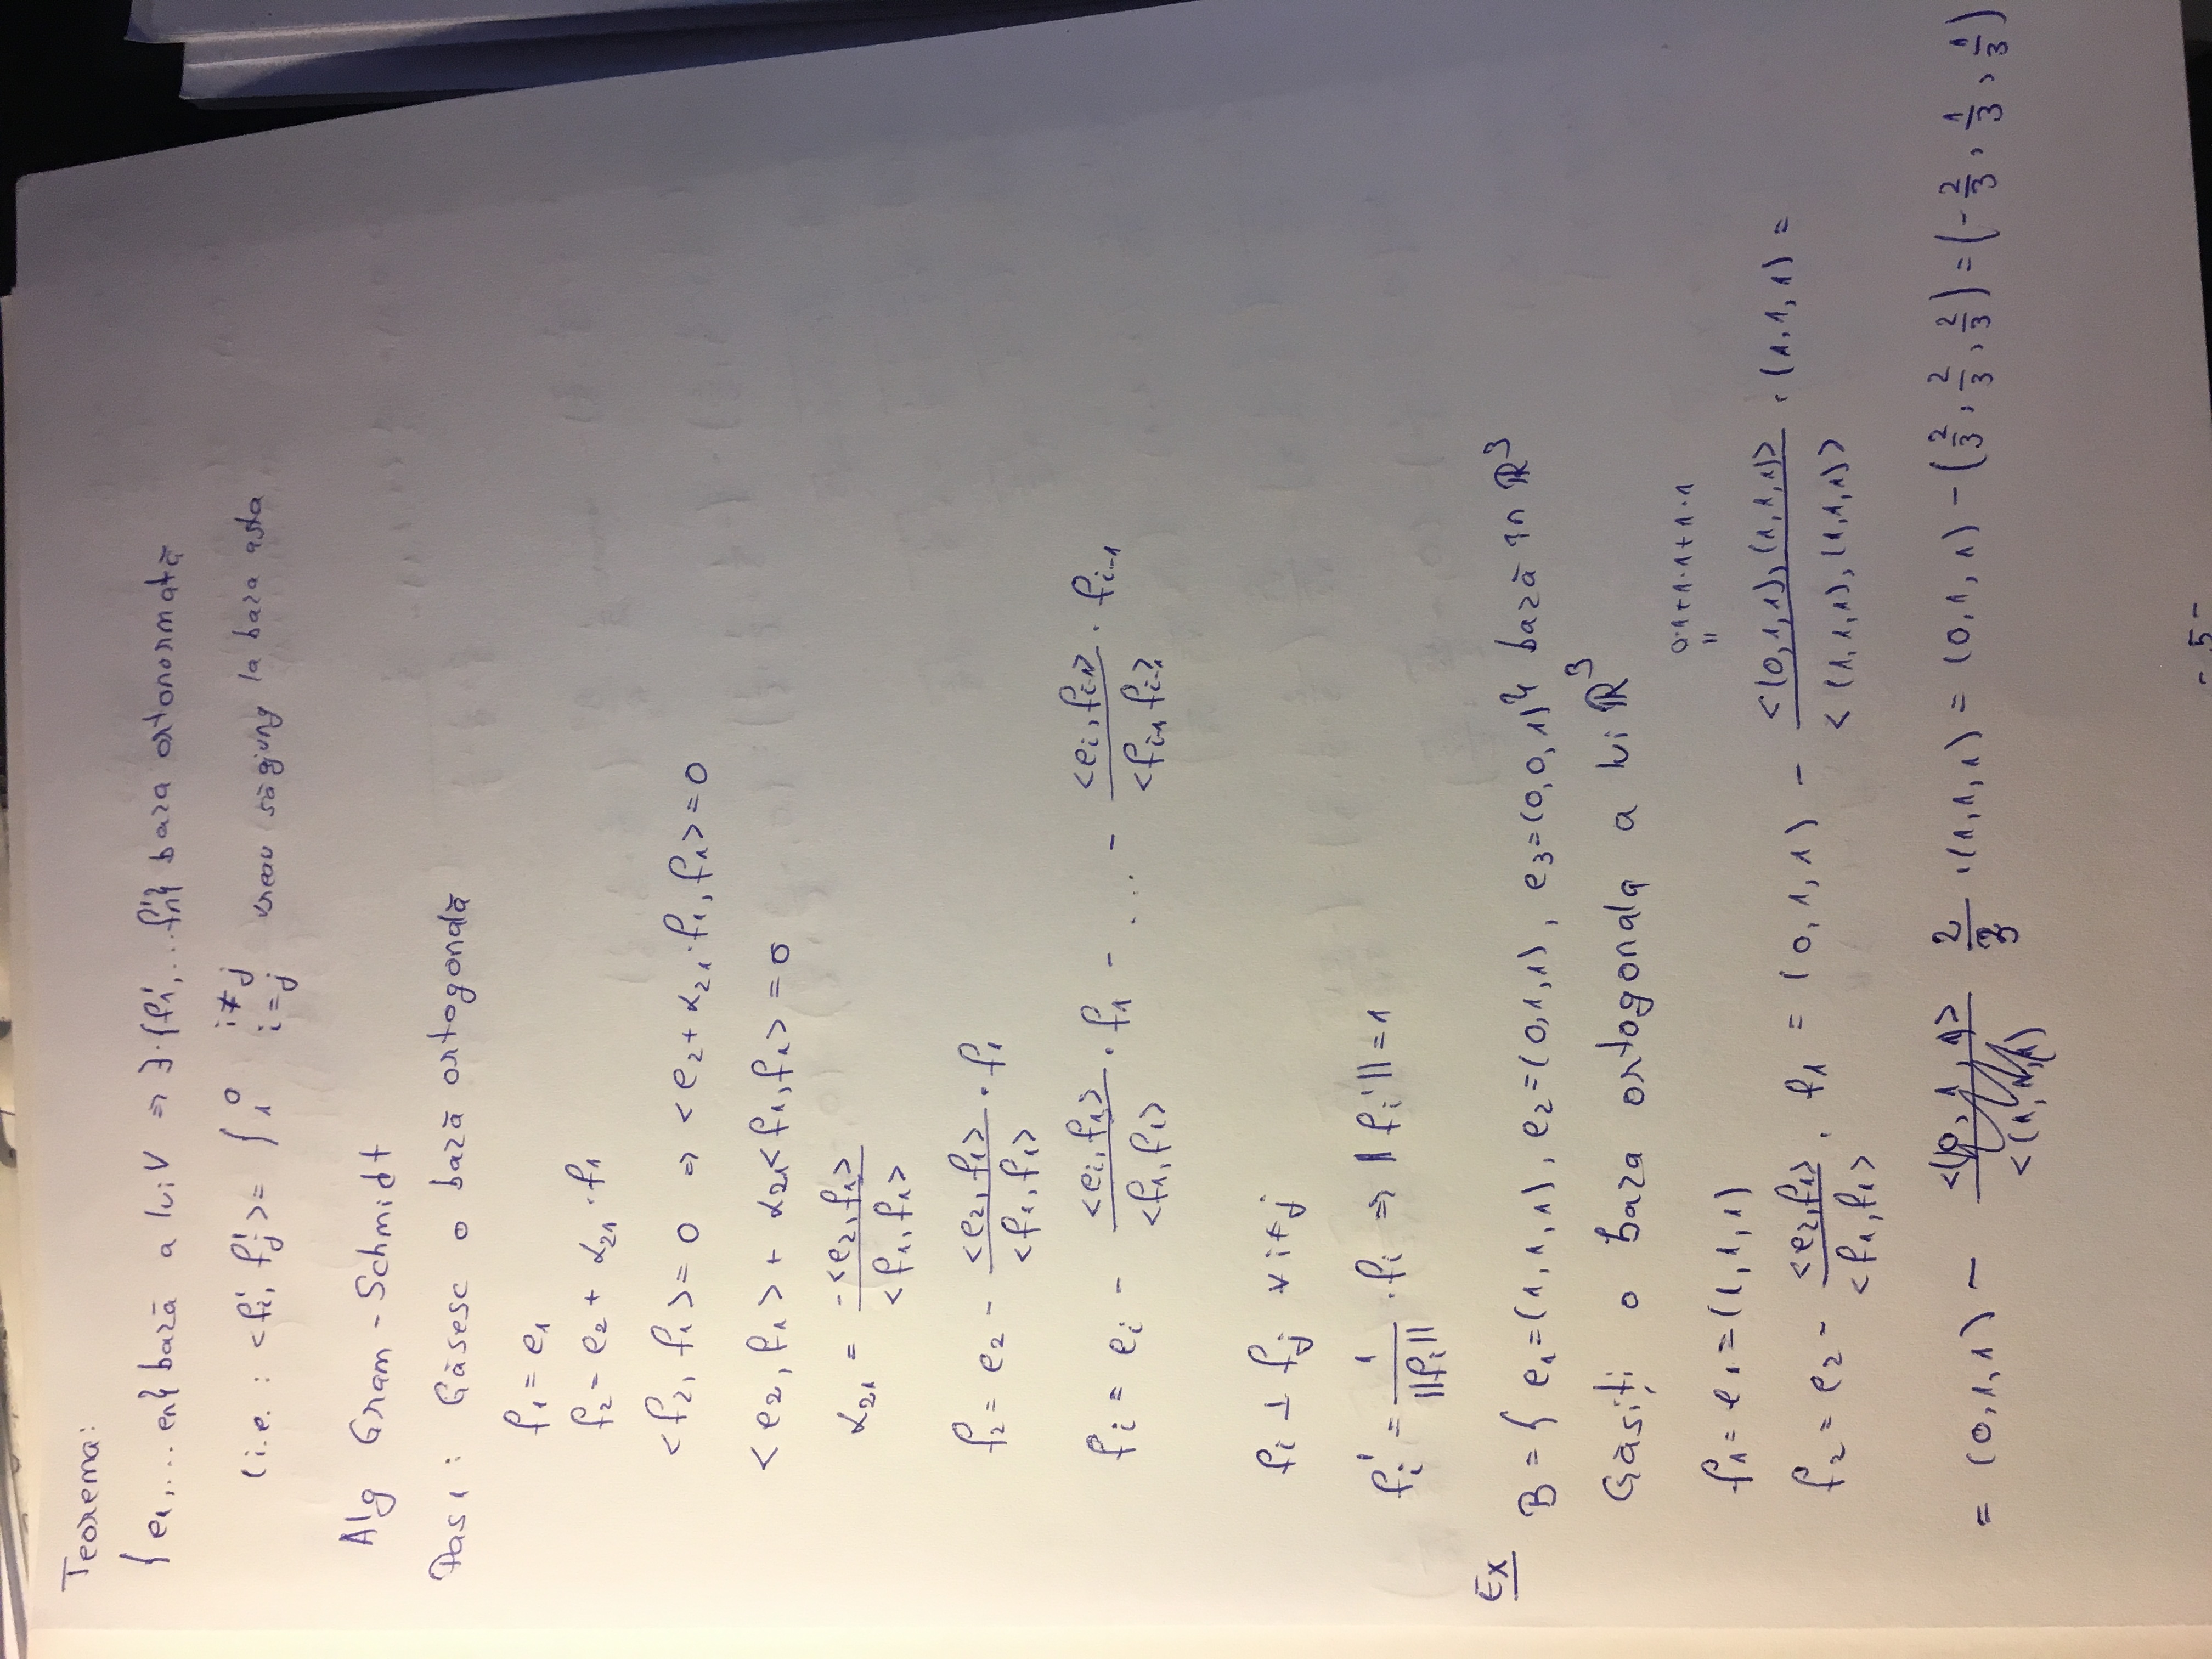 Teorema:
{e1,... en} bază a lui V ⇒ ∃ · {f1',... fn'} baza ortonormată
(i.e. : <fi', fj'> = { 0 i≠j
1 i=j vreau să ajung la baza asta
Alg Gram - Schmidt
Pas 1 : Găsesc o bază ortogonală
f1 = e1
f2 = e2 + α21 · f1
<f2, f1> = 0 ⇒ <e2 + α21 · f1, f1> = 0
<e2, f1> + α21<f1, f1> = 0
α21 = -<e2, f1> / <f1, f1>
f2 = e2 - <e2, f1> / <f1, f1> · f1
fi = ei - <ei, f1> / <f1, f1> · f1 - ... - <ei, fi-1> / <fi-1, fi-1> · fi-1
fi ⊥ fj ∀ i≠j
fi' = 1 / ||fi|| · fi ⇒ ||fi'|| = 1
Ex
B = { e1=(1,1,1), e2=(0,1,1), e3=(0,0,1)} bază în ℝ³
Găsiți o baza ortogonala a lui ℝ³
0·1+1·1+1·1
=
f1 = e1 = (1,1,1)
f2 = e2 - <e2, f1> / <f1, f1> · f1 = (0,1,1) - <(0,1,1),(1,1,1)> / <(1,1,1),(1,1,1)> · (1,1,1) =
= (0,1,1) - <(0,1,1)> / <(1,1,1) 2/3 · (1,1,1) = (0,1,1) - (2/3, 2/3, 2/3) = (-2/3, 1/3, 1/3)
- 5 -